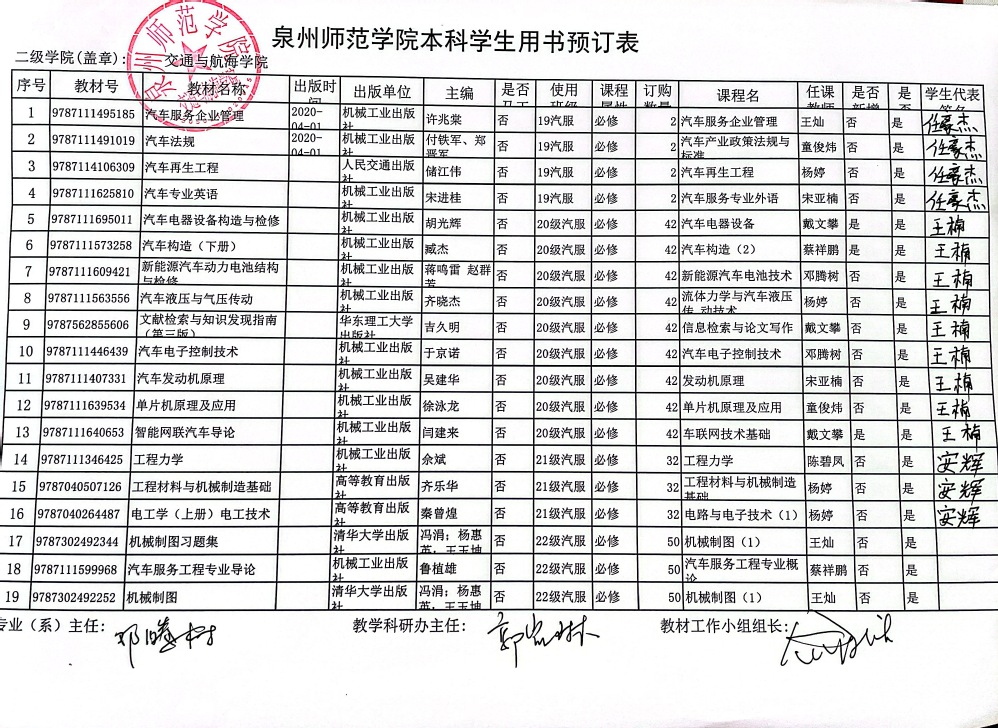 泉州师范学院本科学生用书预订表
二级学院(盖章): 交通与航海学院
序号 教材号 教材名称 出版时间 出版单位 主编 是否 使用 课程 订购 课程名 任课教师 是否 是 学生代表
1 9787111495185 汽车服务企业管理 2020-04-01 机械工业出版社 许兆棠 否 19汽服 必修 2 汽车服务企业管理 王灿 否 是 任豪杰
2 9787111491019 汽车法规 2020-04-01 机械工业出版社 付铁军、郑晋军 否 19汽服 必修 2 汽车产业政策法规与标准 童俊炜 否 是 任豪杰
3 9787114106309 汽车再生工程 人民交通出版社 储江伟 否 19汽服 必修 2 汽车再生工程 杨婷 否 是 任豪杰
4 9787111625810 汽车专业英语 机械工业出版社 宋进桂 否 19汽服 必修 2 汽车服务专业外语 宋亚楠 否 是 任豪杰
5 9787111695011 汽车电器设备构造与检修 机械工业出版社 胡光辉 否 20级汽服 必修 42 汽车电器设备 戴文攀 是 是 王楠
6 9787111573258 汽车构造（下册） 机械工业出版社 臧杰 否 20级汽服 必修 42 汽车构造（2） 蔡祥鹏 否 是 王楠
7 9787111609421 新能源汽车动力电池结构与检修 机械工业出版社 蒋鸣雷 赵群芳 否 20级汽服 必修 42 新能源汽车电池技术 邓腾树 否 是 王楠
8 9787111563556 汽车液压与气压传动 机械工业出版社 齐晓杰 否 20级汽服 必修 42 流体力学与汽车液压传 动技术 杨婷 否 是 王楠
9 9787562855606 文献检索与知识发现指南（第三版） 华东理工大学出版社 吉久明 否 20级汽服 必修 42 信息检索与论文写作 戴文攀 否 是 王楠
10 9787111446439 汽车电子控制技术 机械工业出版社 于京诺 否 20级汽服 必修 42 汽车电子控制技术 邓腾树 否 是 王楠
11 9787111407331 汽车发动机原理 机械工业出版社 吴建华 否 20级汽服 必修 42 发动机原理 宋亚楠 否 是 王楠
12 9787111639534 单片机原理及应用 机械工业出版社 徐泳龙 否 20级汽服 必修 42 单片机原理及应用 童俊炜 否 是 王楠
13 9787111640653 智能网联汽车导论 机械工业出版社 闫建来 否 20级汽服 必修 42 车联网技术基础 戴文攀 是 是 王楠
14 9787111346425 工程力学 机械工业出版社 佘斌 否 21级汽服 必修 32 工程力学 陈碧凤 否 是 安辉
15 9787040507126 工程材料与机械制造基础 高等教育出版社 齐乐华 否 21级汽服 必修 32 工程材料与机械制造基础 杨婷 否 是 安辉
16 9787040264487 电工学（上册）电工技术 高等教育出版社 秦曾煌 否 21级汽服 必修 32 电路与电子技术（1） 杨婷 否 是 安辉
17 9787302492344 机械制图习题集 清华大学出版社 冯涓; 杨惠英; 王玉坤 否 22级汽服 必修 50 机械制图（1） 王灿 否 是
18 9787111599968 汽车服务工程专业导论 机械工业出版社 鲁植雄 否 22级汽服 必修 50 汽车服务工程专业概论 蔡祥鹏 否 是
19 9787302492252 机械制图 清华大学出版社 冯涓; 杨惠英; 王玉坤 否 22级汽服 必修 50 机械制图（1） 王灿 否 是
专业（系）主任: 邓腾树 教学科研办主任: 教材工作小组组长: